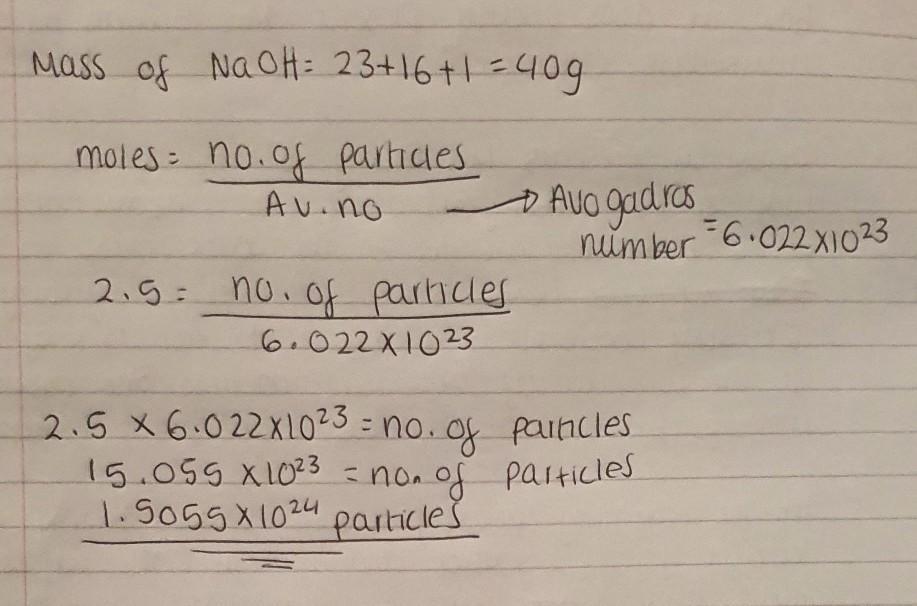 Mass of NaOH = 23+16+1 = 40g
moles = no. of particles
Av. no → Avogadros
number = 6.022x10²³
2.5 = no. of particles
6.022x10²³
2.5 x 6.022x10²³ = no. of particles
15.055 x10²³ = no. of particles
1.5055x10²⁴ particles